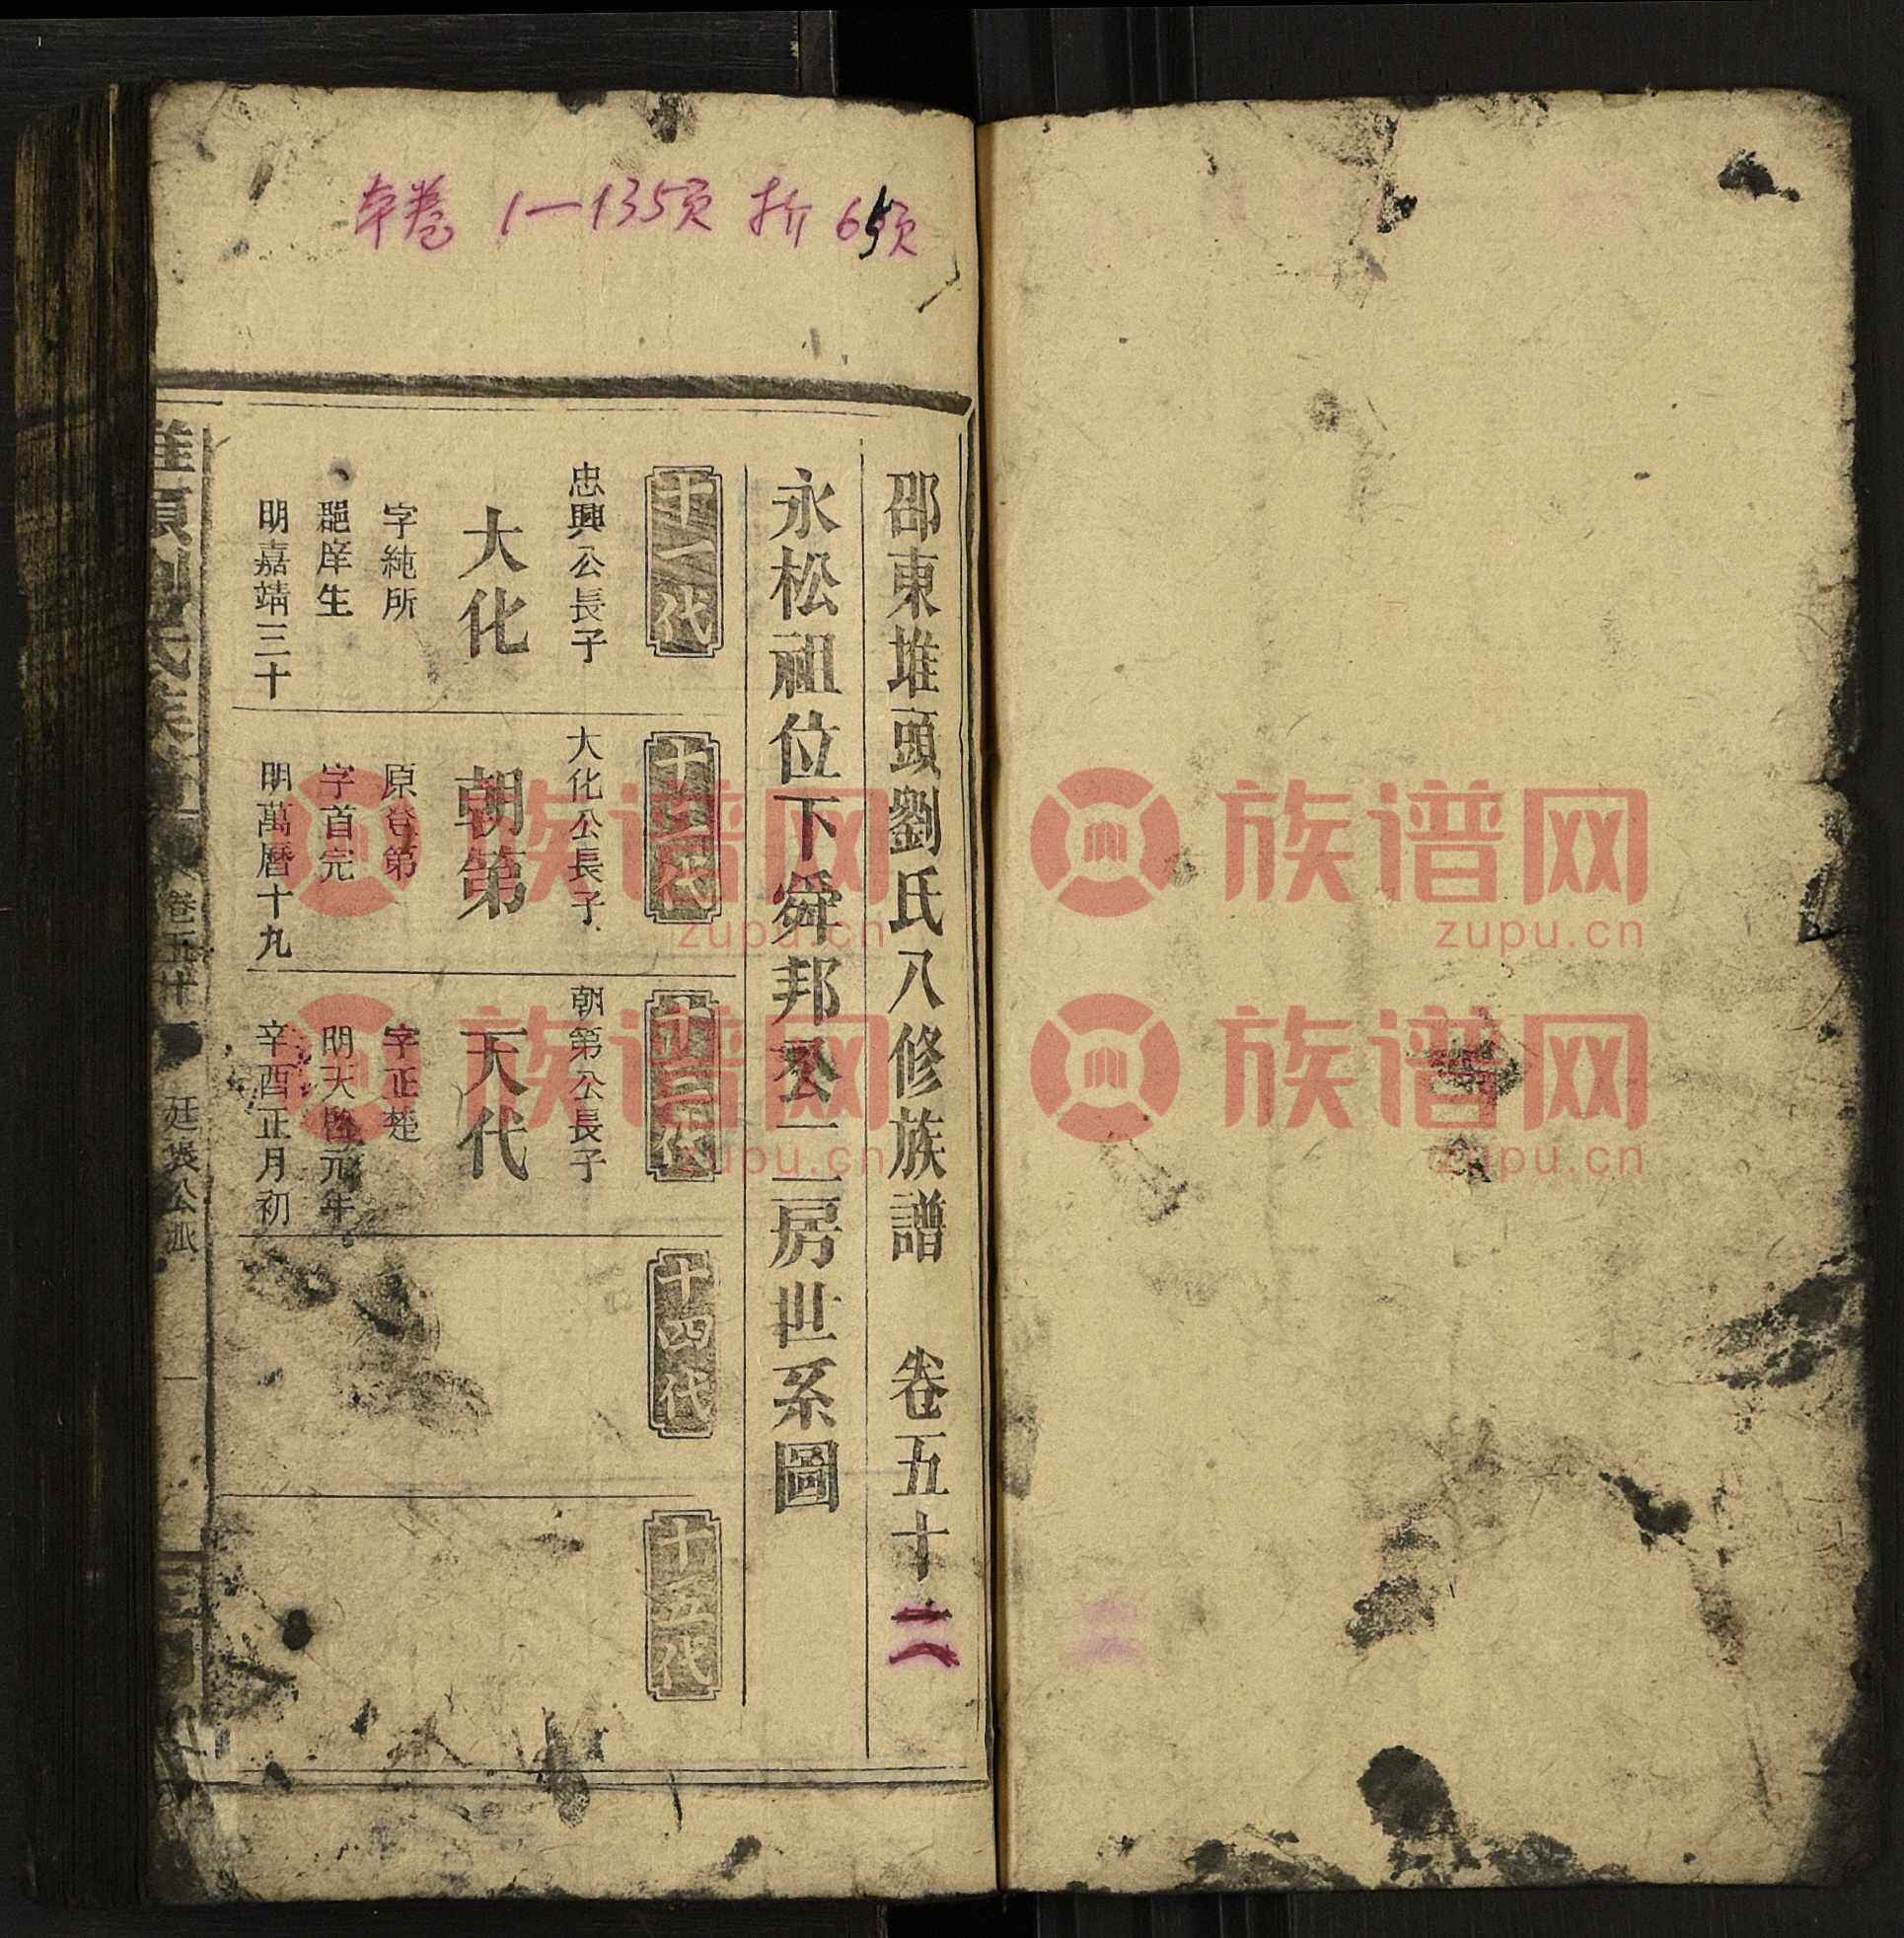 本卷 1—135页 折 65页
邵東堆頭劉氏八修族譜 卷五十二
永松祖位下舜邦公二房世系圖
十一代
忠興公長子
大化
字純所
庠生
明嘉靖三十
十二代
大化公長子
朝第
原名第
字首完
明萬曆十九
十三代
朝第公長子
天代
字正楚
明天啟元年
辛酉正月初
十四代
十五代
堆頭劉氏族譜
卷五十
廷 公派
一
族谱网
zupu.cn
族谱网
zupu.cn
族谱网
zupu.cn
族谱网
zupu.cn